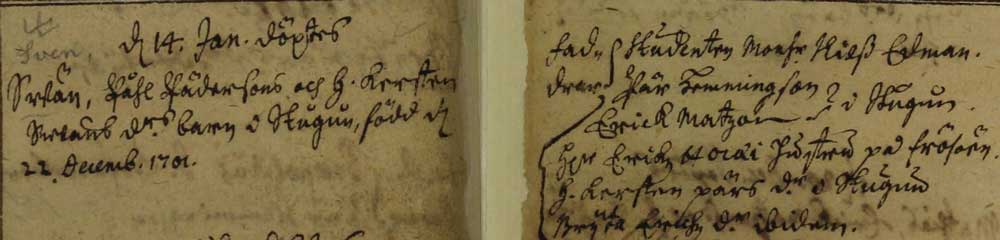 Sven,
d 14. Jan. döptes
Swän, Påhl Pädersons och H. Kersten
Swäns d:rs barn i Stugun, född d
22. Decemb. 1701.
fad-
drar
Studenten Monsr Nilß Edman.
Pär Hemmingson
Erick Matzon } i Stugun.
Hr Erichz Hustru på Frösön.
H. Kersten Pärs d:r i Stugun
Erichz d:r ibidem.